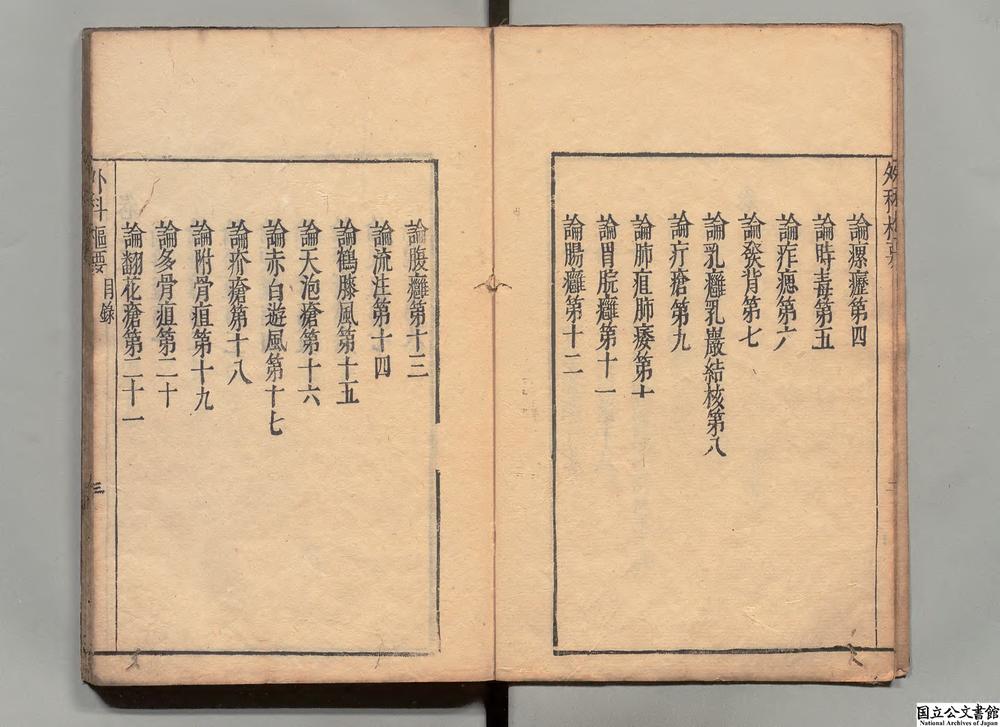 論瘰癧第四
論時毒第五
論痄腮第六
論發背第七
論乳癰乳巖結核第八
論疔瘡第九
論肺疽肺痿第十
論胃脘癰第十一
論腸癰第十二
論腹癰第十三
論流注第十四
論鶴膝風第十五
論天泡瘡第十六
論赤白遊風第十七
論疥瘡第十八
論附骨疽第十九
論多骨疽第二十
論翻花瘡第二十一
外科樞要 目錄 三
国立公文書館
National Archives of Japan